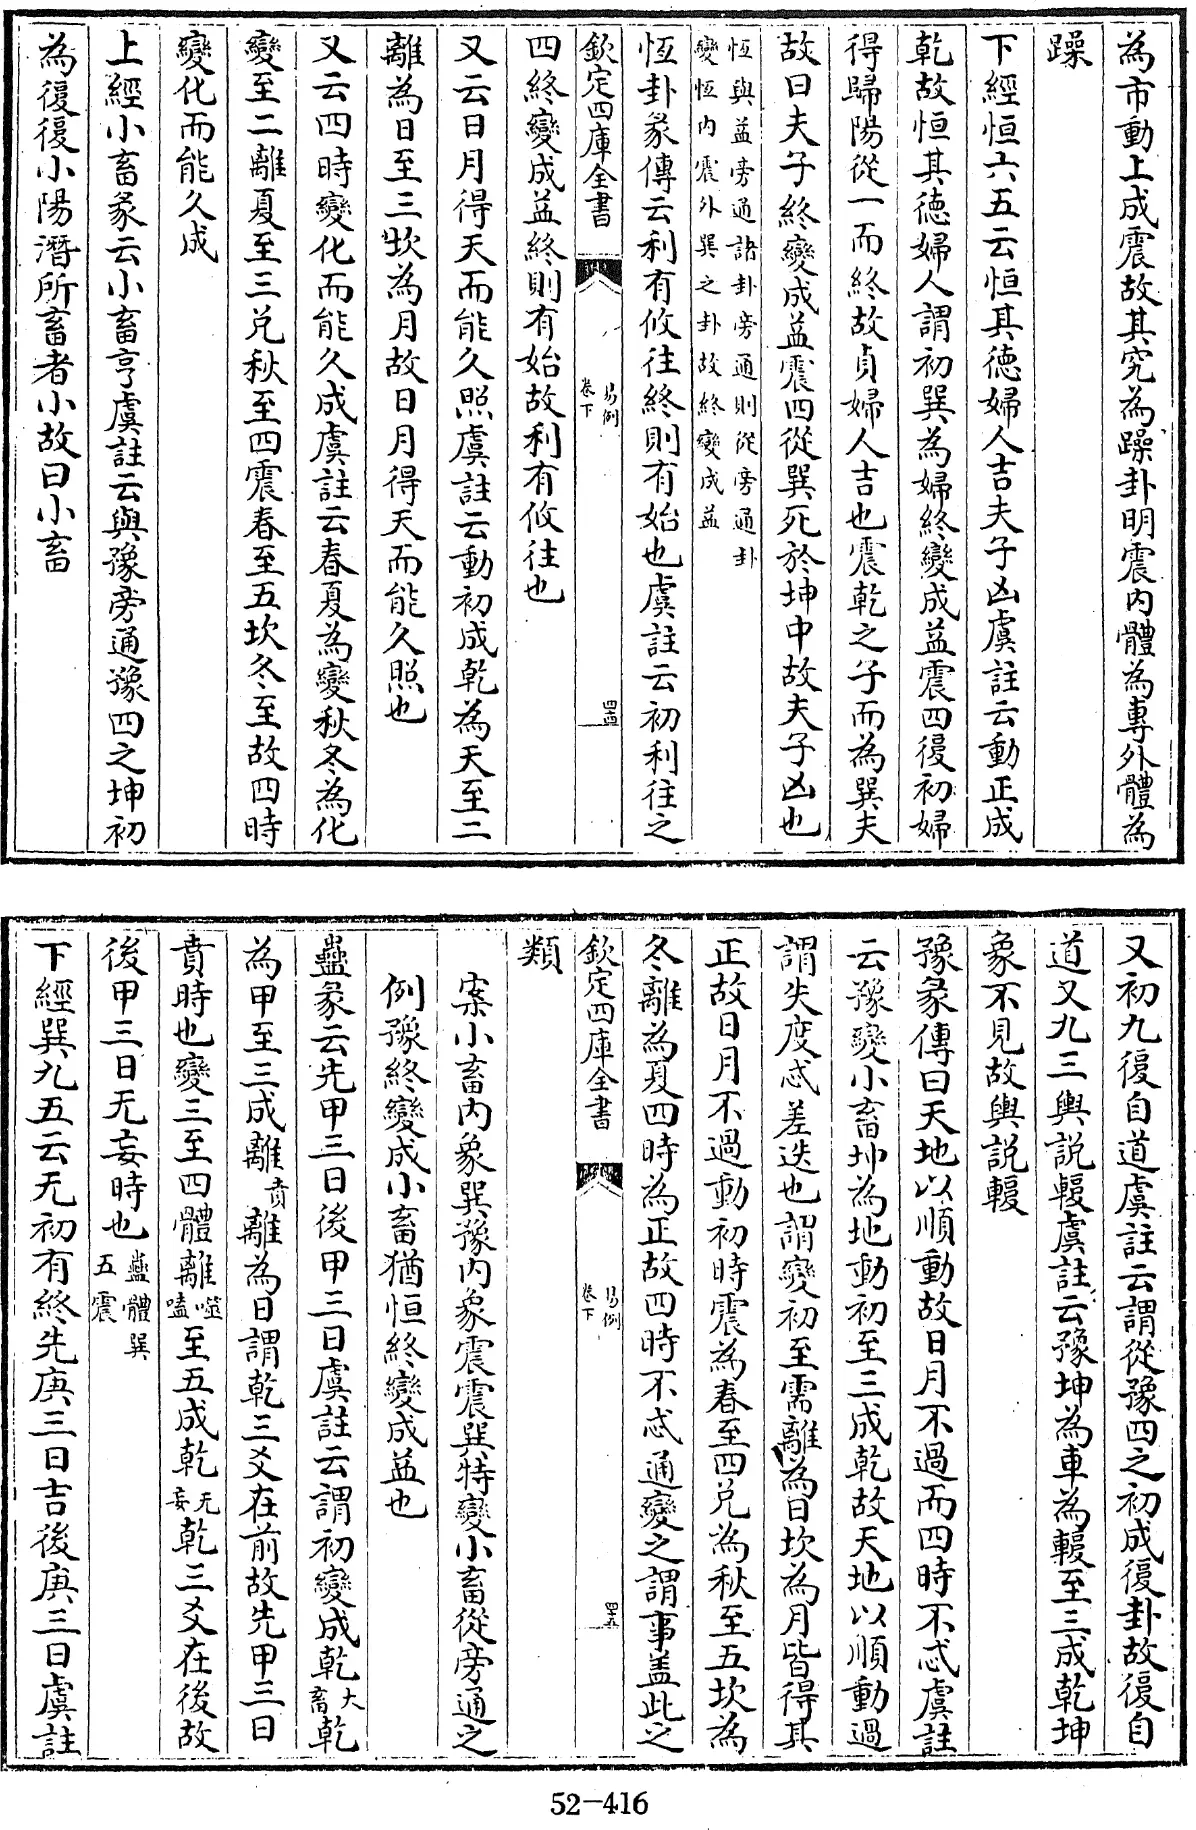 為市動上成震故其究為躁卦明震内體為專外體為
躁
下經恒六五云恒其徳婦人吉夫子凶虞註云動正成
乾故恒其徳婦人謂初巽為婦終變成益震四復初婦
得歸陽從一而終故貞婦人吉也震乾之子而為巽夫
故曰夫子終變成益震四從巽死於坤中故夫子凶也
恆與益旁通諸卦旁通則從旁通卦
變恒内震外巽之卦故終變成益
恆卦彖傳云利有攸往終則有始也虞註云初利往之
欽定四庫全書
易例
卷下
四十四
四終變成益終則有始故利有攸往也
又云日月得天而能久照虞註云動初成乾為天至二
離為日至三坎為月故日月得天而能久照也
又云四時變化而能久成虞註云春夏為變秋冬為化
變至二離夏至三兑秋至四震春至五坎冬至故四時
變化而能久成
上經小畜彖云小畜亨虞註云與豫旁通豫四之坤初
為復復小陽潛所畜者小故曰小畜
又初九復自道虞註云謂從豫四之初成復卦故復自
道又九三輿説輹虞註云豫坤為車為輹至三成乾坤
象不見故輿説輹
豫彖傳曰天地以順動故日月不過而四時不忒虞註
云豫變小畜坤為地動初至三成乾故天地以順動過
謂失度忒差迭也謂變初至需離為日坎為月皆得其
正故日月不過動初時震為春至四兑為秋至五坎為
冬離為夏四時為正故四時不忒通變之謂事盖此之
欽定四庫全書
易例
卷下
四十五
類
案小畜内象巽豫内象震震巽特變小畜從旁通之
例豫終變成小畜猶恒終變成益也
蠱彖云先甲三日後甲三日虞註云謂初變成乾大畜乾
為甲至三成離賁離為日謂乾三爻在前故先甲三日
賁時也變三至四體離噬嗑至五成乾无妄乾三爻在後故
後甲三日无妄時也蠱體巽五震
下經巽九五云无初有終先庚三日吉後庚三日虞註
52-416